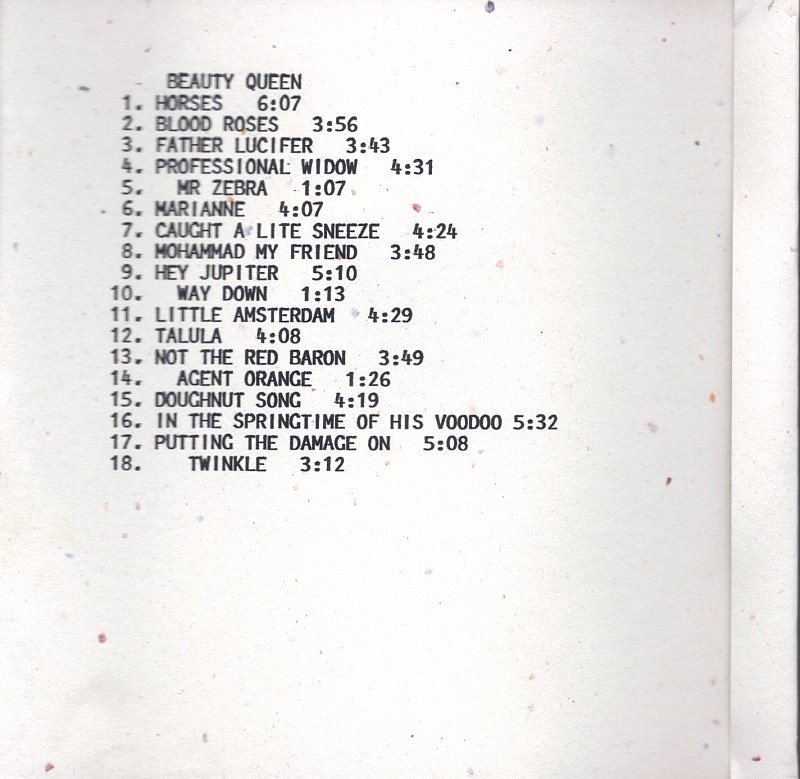 BEAUTY QUEEN
1. HORSES 6:07
2. BLOOD ROSES 3:56
3. FATHER LUCIFER 3:43
4. PROFESSIONAL WIDOW 4:31
5. MR ZEBRA 1:07
6. MARIANNE 4:07
7. CAUGHT A LITE SNEEZE 4:24
8. MOHAMMAD MY FRIEND 3:48
9. HEY JUPITER 5:10
10. WAY DOWN 1:13
11. LITTLE AMSTERDAM 4:29
12. TALULA 4:08
13. NOT THE RED BARON 3:49
14. AGENT ORANGE 1:26
15. DOUGHNUT SONG 4:19
16. IN THE SPRINGTIME OF HIS VOODOO 5:32
17. PUTTING THE DAMAGE ON 5:08
18. TWINKLE 3:12